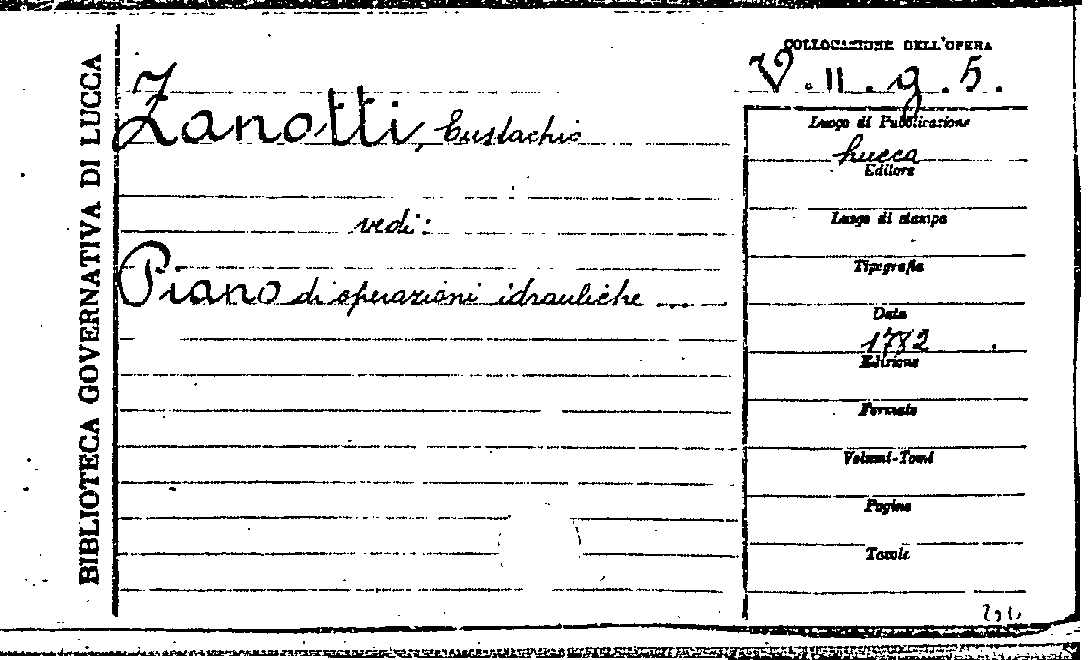 BIBLIOTECA GOVERNATIVA DI LUCCA
COLLOCAZIONE DELL'OPERA
V. 11. g. 5.
Zanotti, Eustachio
vedi:
Piano di operazioni idrauliche ...
Luogo di Pubblicazione
Lucca
Editore
Luogo di stampa
Tipografia
Data
1782
Edizione
Formato
Volumi-Tomi
Pagine
Tavole